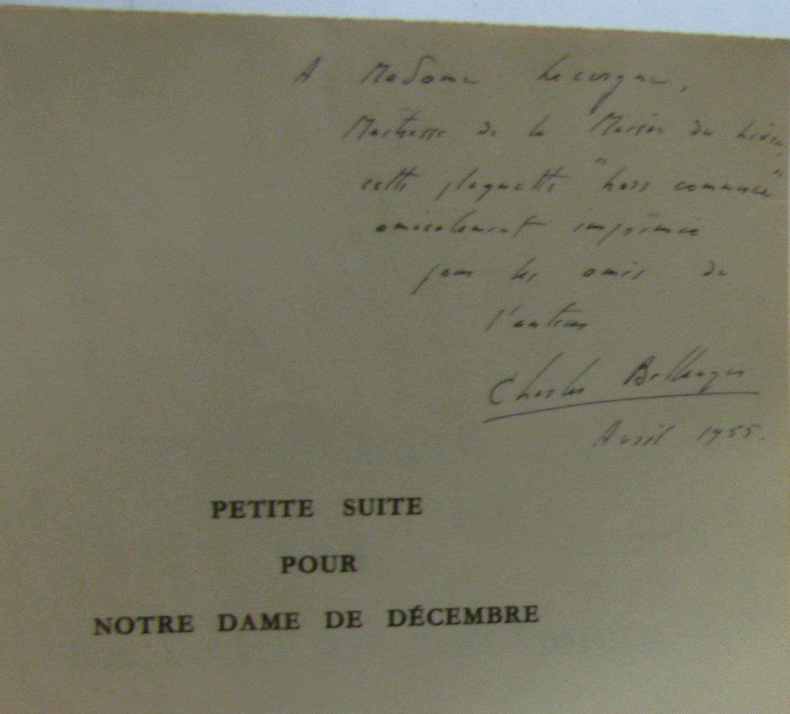 A Madame Lecorgne,
Maîtresse de la Maison du Livre,
cette plaquette "hors commerce"
amicalement imprimée
pour les amis de
l'auteur
Charles Bellenger
Avril 1955.
PETITE SUITE
POUR
NOTRE DAME DE DÉCEMBRE